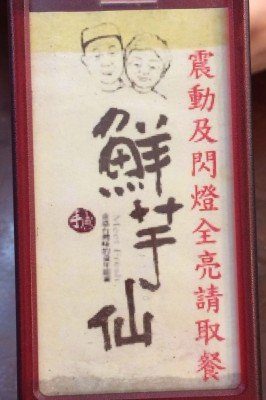 震動及閃燈全亮請取餐
鮮芋仙
手感